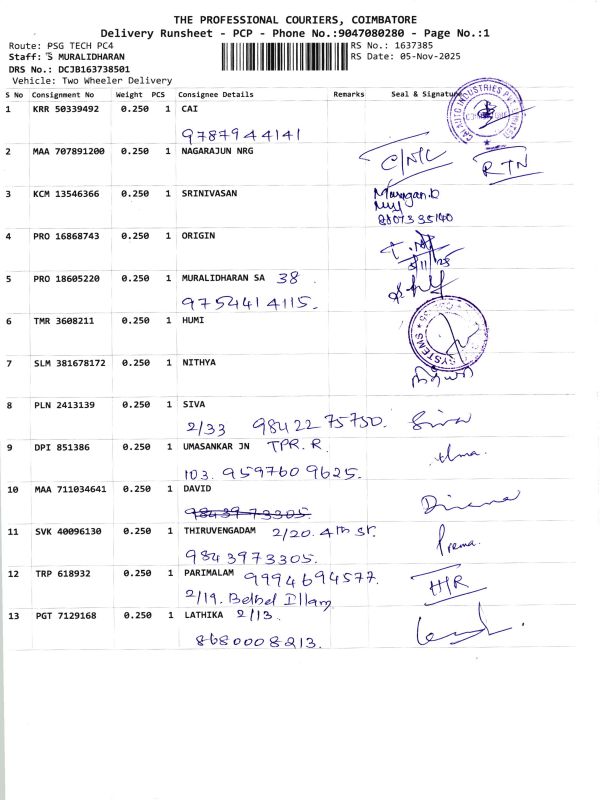 THE PROFESSIONAL COURIERS, COIMBATORE
Delivery Runsheet - PCP - Phone No.:9047080280 - Page No.:1
Route: PSG TECH PC4 RS No.: 1637385
Staff: S MURALIDHARAN RS Date: 05-Nov-2025
DRS No.: DCJB163738501
Vehicle: Two Wheeler Delivery
S No Consignment No Weight PCS Consignee Details Remarks Seal & Signature
1 KRR 50339492 0.250 1 CAI
9787944141
2 MAA 707891200 0.250 1 NAGARAJUN NRG C/NTC RTN
3 KCM 13546366 0.250 1 SRINIVASAN Murugan.D
8807335140
4 PRO 16868743 0.250 1 ORIGIN
5/11/25
5 PRO 18605220 0.250 1 MURALIDHARAN SA 38.
9754414115.
6 TMR 3608211 0.250 1 HUMI SYSTEMS
7 SLM 381678172 0.250 1 NITHYA
8 PLN 2413139 0.250 1 SIVA
2/33 9842275750. Siva
9 DPI 851386 0.250 1 UMASANKAR JN TPR. R. Uma.
103. 9597609625.
10 MAA 711034641 0.250 1 DAVID
98439 73305.
11 SVK 40096130 0.250 1 THIRUVENGADAM 2/20. 4th st. Prema.
9843973305.
12 TRP 618932 0.250 1 PARIMALAM 9994694577. H/R
2/19. Bethel Illam
13 PGT 7129168 0.250 1 LATHIKA 2/13.
8680008213.